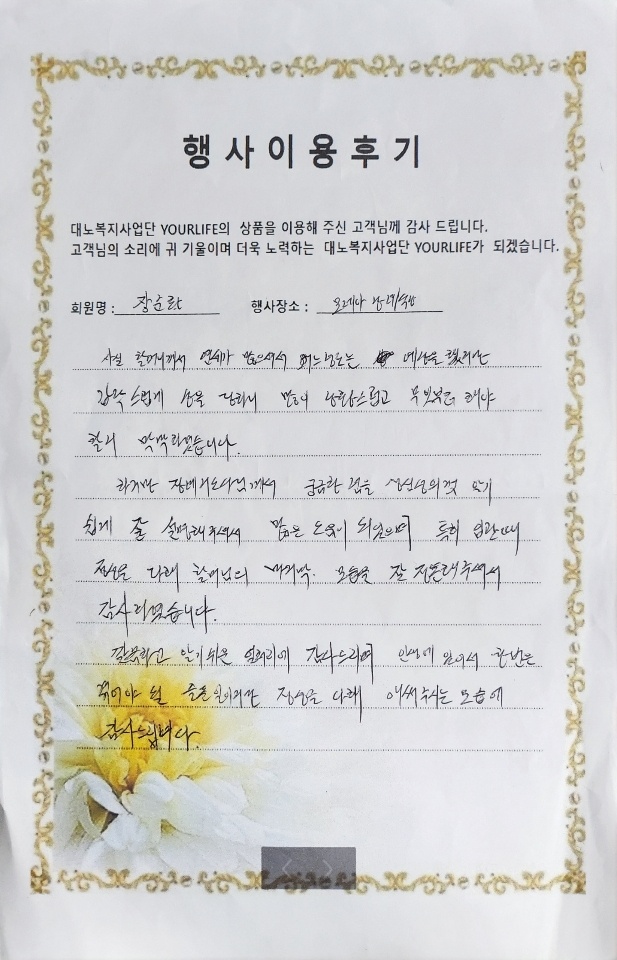 행사이용후기
대노복지사업단 YOURLIFE의 상품을 이용해 주신 고객님께 감사 드립니다.
고객님의 소리에 귀 기울이며 더욱 노력하는 대노복지사업단 YOURLIFE가 되겠습니다.
회원명 : 장순락 행사장소 :
사실 할머니께서 연세가 많으셔서 어느정도는 예상을 했지만
갑작스럽게 상을 당하니 많이 당황스럽고 무엇부터 해야
할지 막막하였습니다.
하지만 장례지도사님께서 궁금한 점을 성심성의껏 알기
쉽게 잘 설명해주셔서 많은 도움이 되었으며 특히 입관때
정성을 다해 할머님의 마지막 모습을 잘 해주셔서
감사하였습니다.
깔끔하고 알기쉬운 일처리에 감사드리며 인생에 있어서 한번은
겪어야 될 슬픈일이지만 정성을 다해 애써주시는 모습에
감사드립니다.